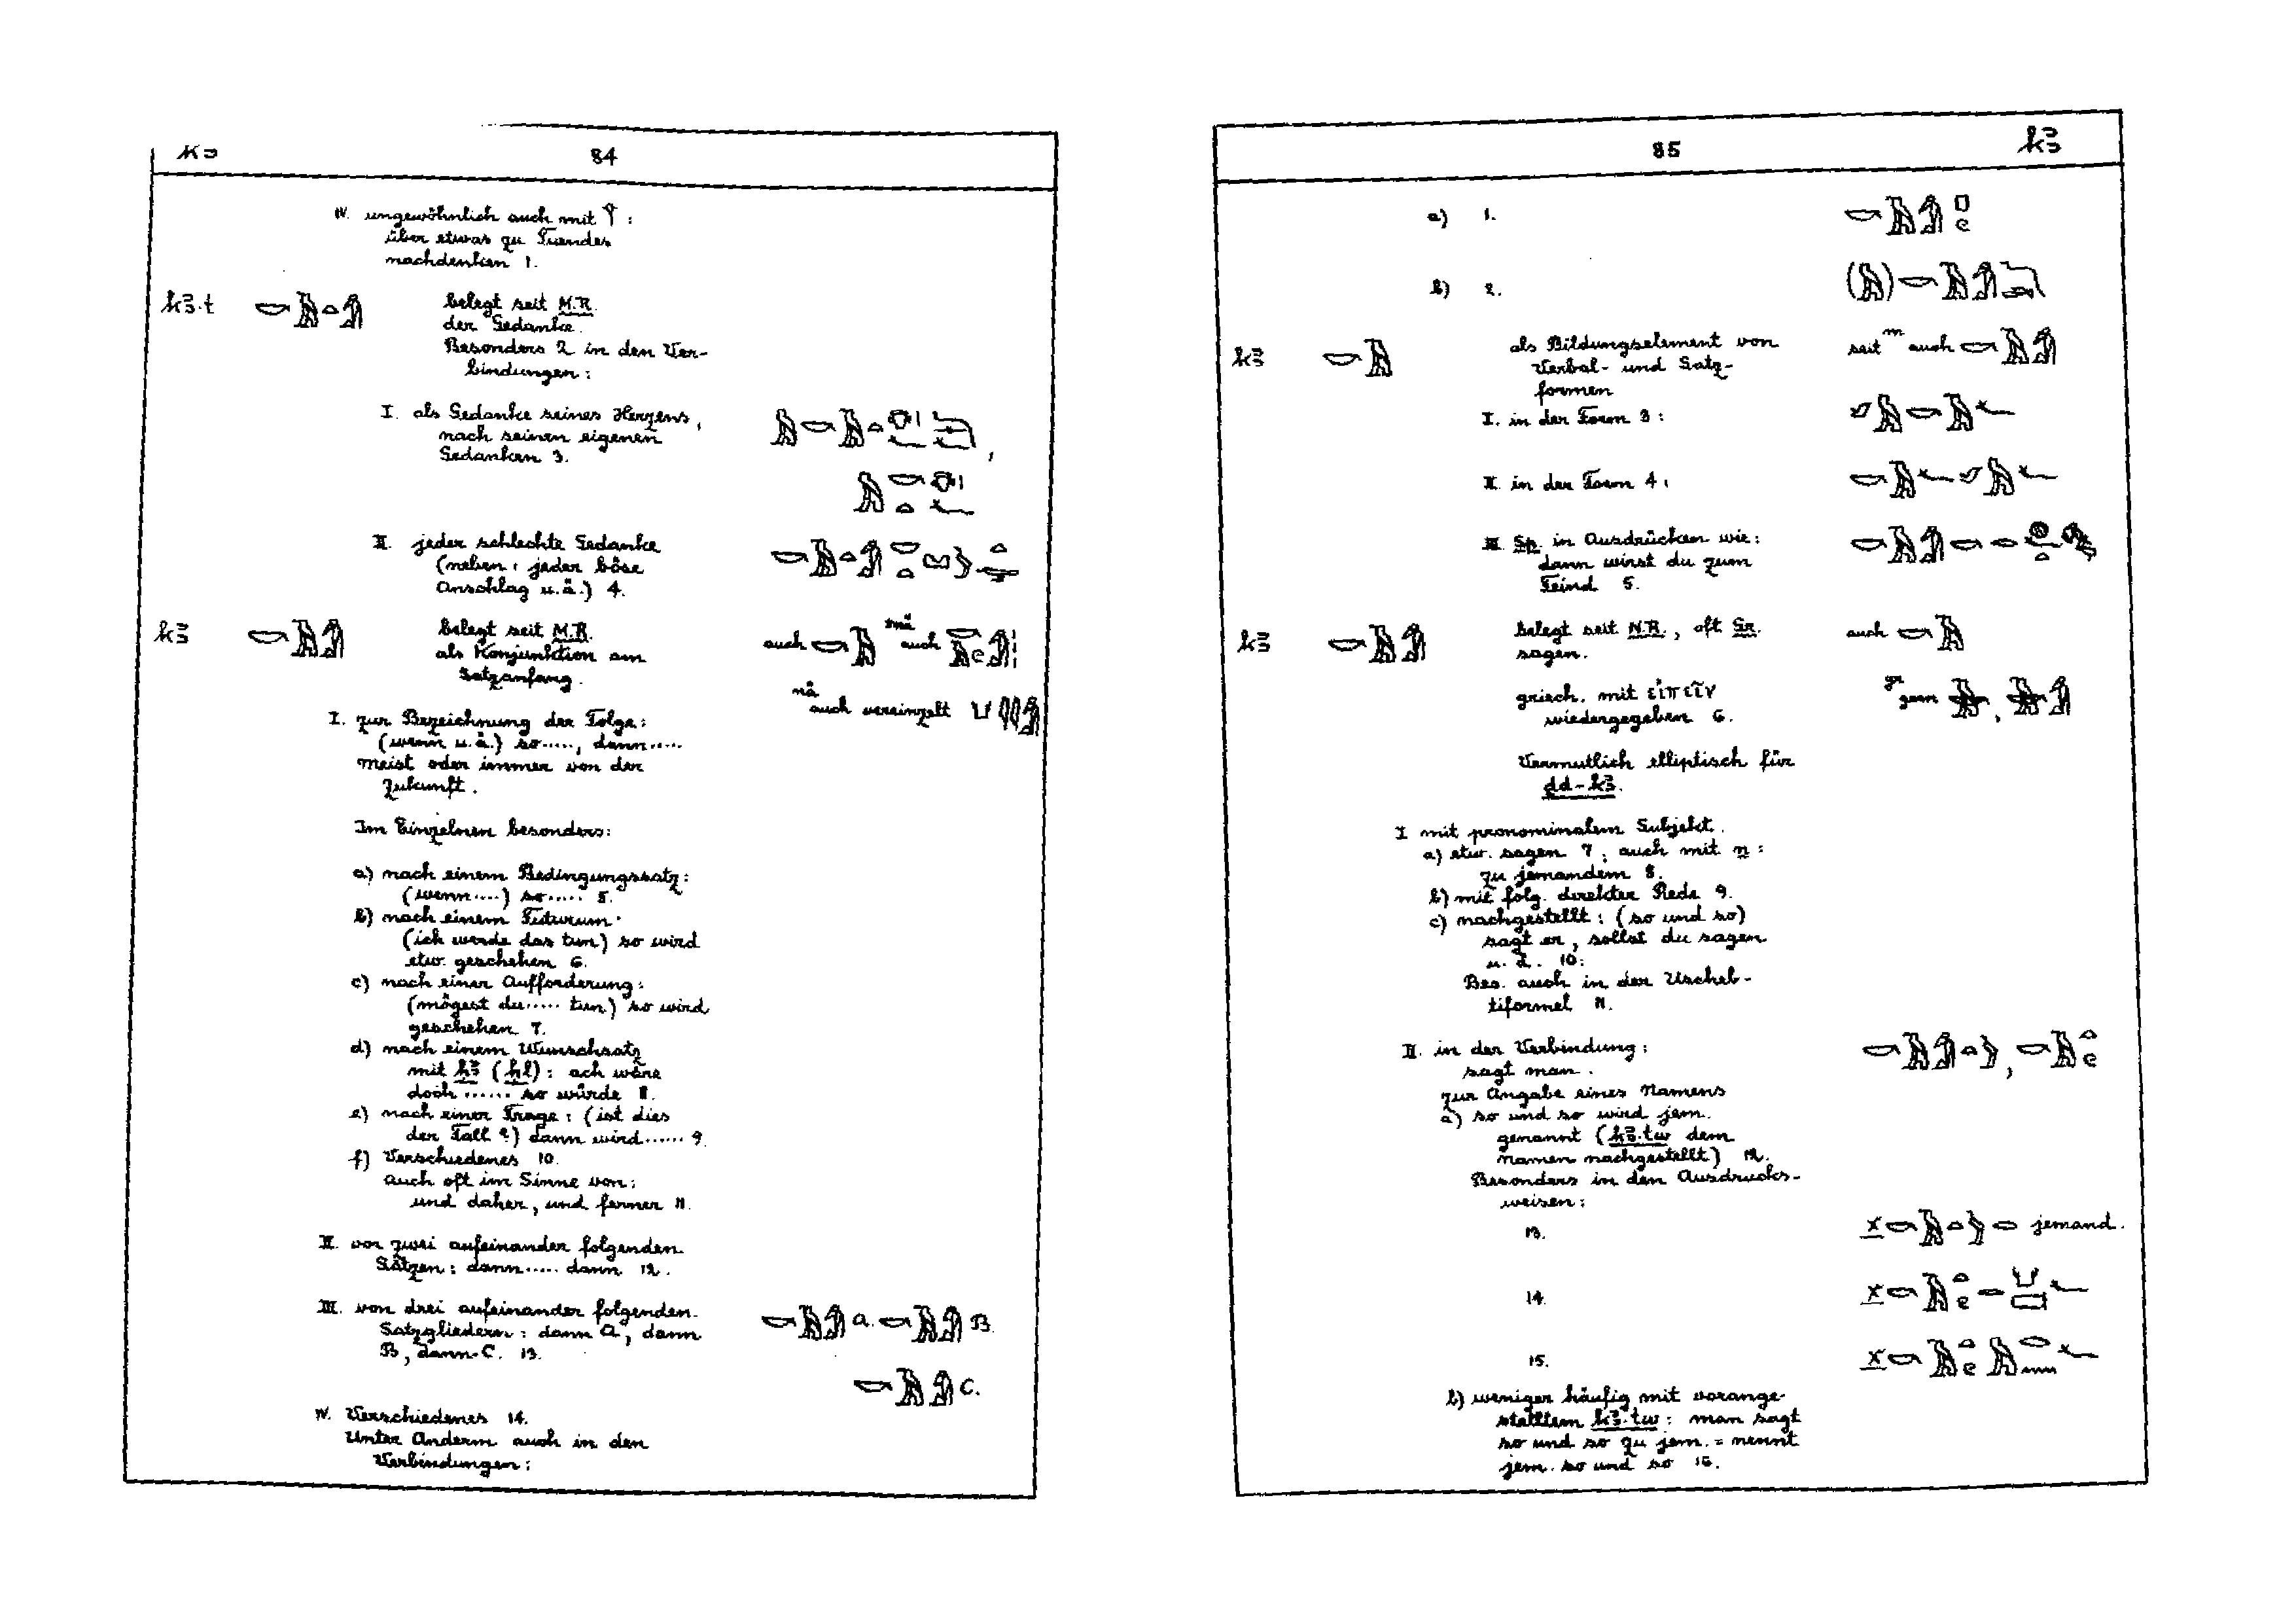 84
IV. ungewöhnlich auch mit :
über etwas zu Tuendes
nachdenken 1.
k3·t
belegt seit M.R.
der Gedanke.
Besonders 2 in den Ver-
bindungen:
I. als Gedanke seines Herzens,
nach seinen eigenen
Gedanken 3.
II. jeder schlechte Gedanke
(neben: jeder böse
Anschlag u.ä.) 4.
k3
belegt seit M.R.
als Konjunktion am
Satzanfang.
auch
auch
nä
auch vereinzelt
I. zur Bezeichnung der Folge:
(wenn u.ä.) so....., dann.....
meist oder immer von der
Zukunft.
Im Einzelnen besonders:
a) nach einem Bedingungssatz:
(wenn....) so..... 5.
b) nach einem Futurum:
(ich werde das tun) so wird
etw. geschehen 6.
c) nach einer Aufforderung:
(mögest du..... tun) so wird
geschehen 7.
d) nach einem Wunschsatz
mit h3 (hl): ach wäre
doch ...... so würde 8.
e) nach einer Frage: (ist dies
der Fall?) dann wird...... 9.
f) Verschiedenes 10.
auch oft im Sinne von:
und daher, und ferner 11.
II. vor zwei aufeinander folgenden
Sätzen: dann..... dann 12.
III. von drei aufeinander folgenden
Satzgliedern: dann A, dann
B, dann C. 13.
A. B.
C.
IV. Verschiedenes 14.
Unter Anderm auch in den
Verbindungen:
85 k3
a) 1.
b) 2.
k3
als Bildungselement von
Verbal- und Satz-
formen
seit auch
I. in der Form 3:
II. in der Form 4:
III. Sp. in Ausdrücken wie:
dann wirst du zum
Feind 5.
k3
belegt seit N.R., oft Gr.
sagen.
auch
griech. mit εἰπεῖν
wiedergegeben 6.
gr
gern
Vermutlich elliptisch für
dd-k3.
I mit pronominalem Subjekt.
a) etw. sagen 7; auch mit n:
zu jemandem 8.
b) mit folg. direkter Rede 9.
c) nachgestellt: (so und so)
sagt er, sollst du sagen
u. ä. 10:
Bes. auch in der Uscheb-
tiformel 11.
II. in der Verbindung:
sagt man.
zur Angabe eines Namens
a) so und so wird jem.
genannt (k3·tw dem
Namen nachgestellt) 12.
Besonders in den Ausdrucks-
weisen:
13. jemand.
14.
15.
b) weniger häufig mit vorange-
stelltem k3·tw: man sagt
so und so zu jem. = nennt
jem. so und so 16.